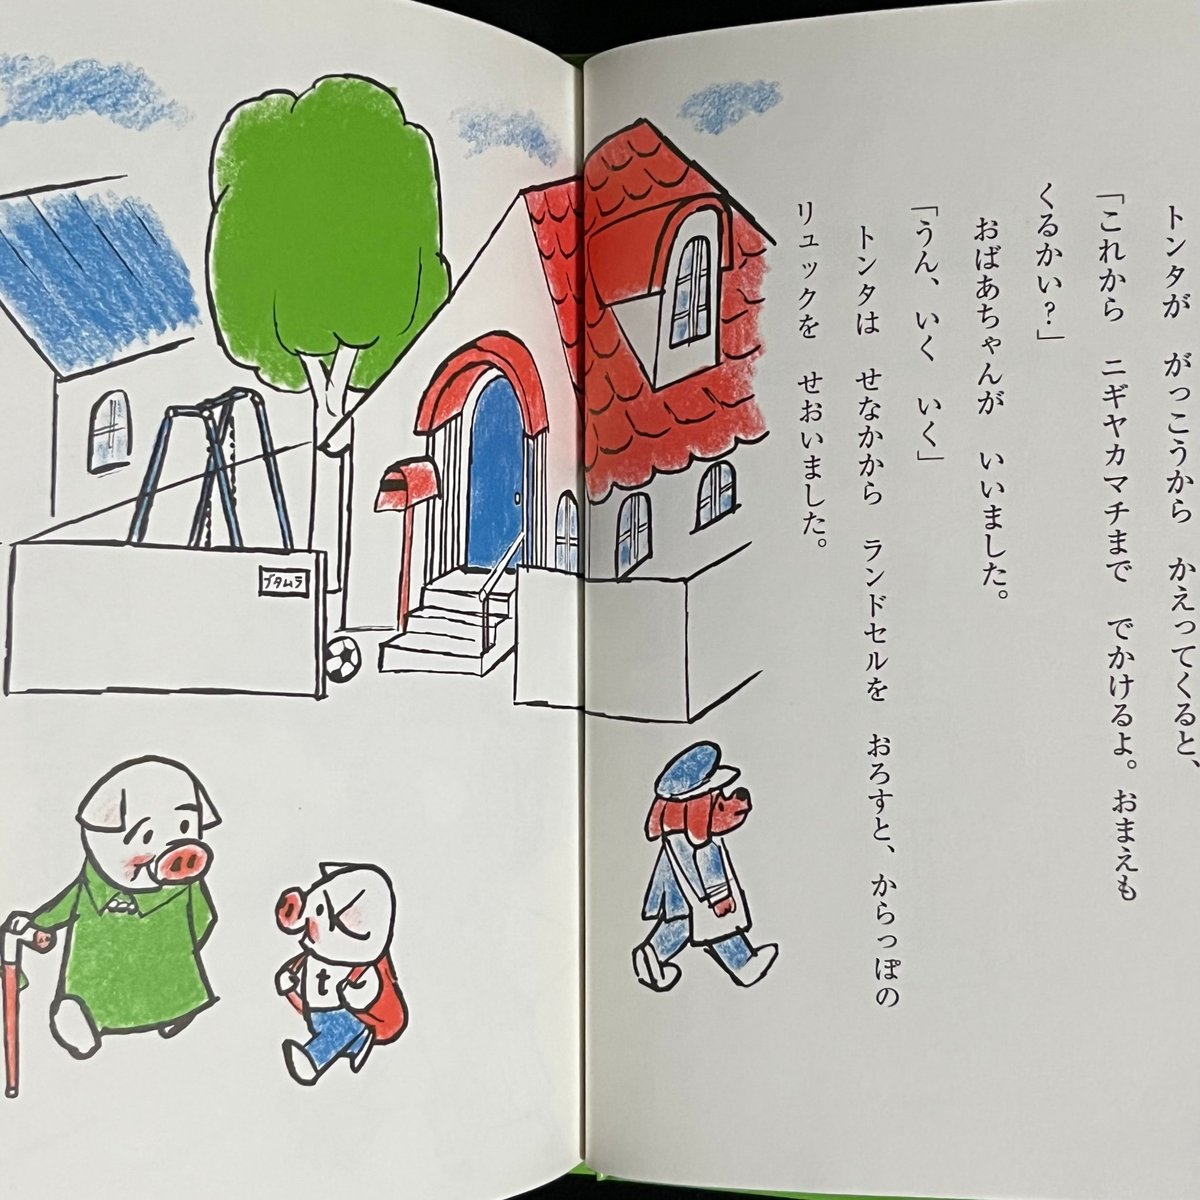 トンタが　がっこうから　かえってくると、
「これから　ニギヤカマチまで　でかけるよ。おまえも
くるかい？」
おばあちゃんが　いいました。
「うん、いく　いく」
トンタは　せなかから　ランドセルを　おろすと、からっぽの
リュックを　せおいました。
ブタムラ
t